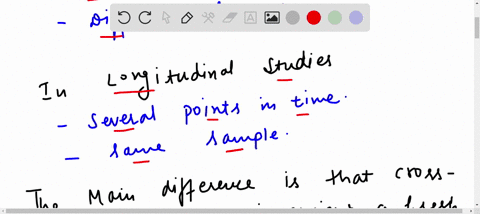 In Longitudinal Studies
- Several points in time.
- same sample.
The Main difference is that cross-